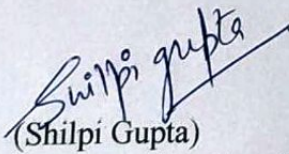 Shilpi gupta
(Shilpi Gupta)